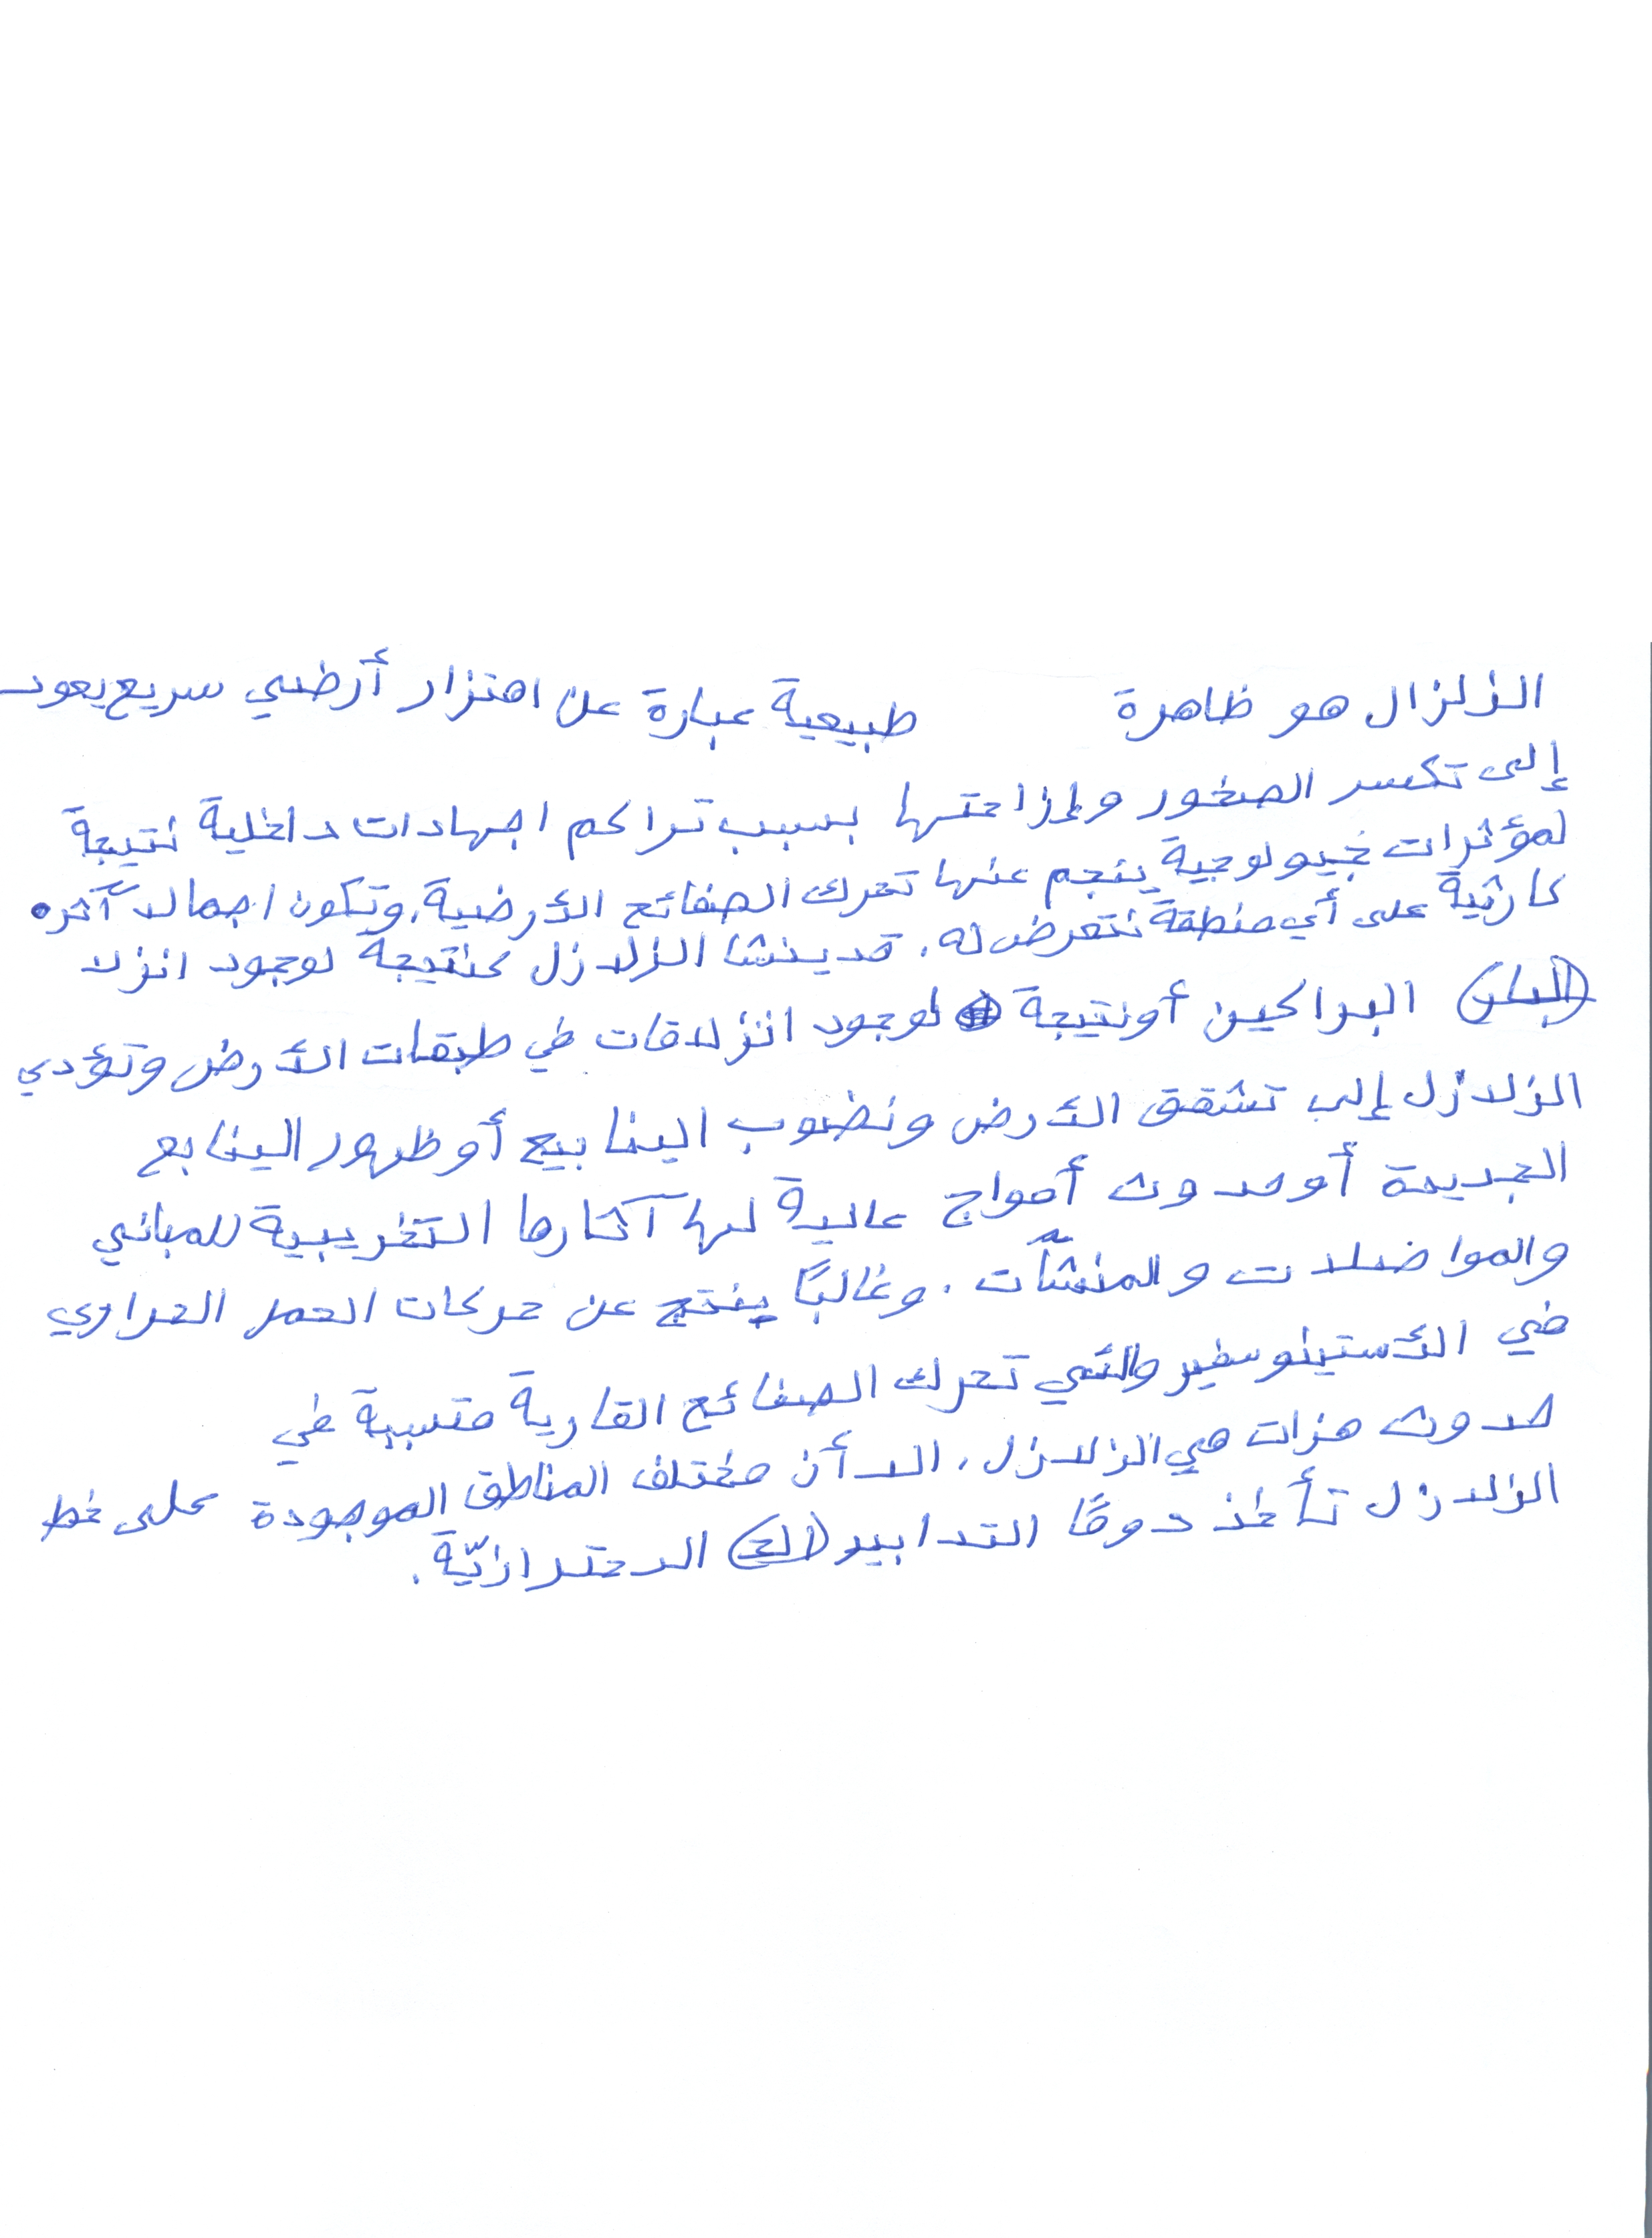 الزلزال هو ظاهرة طبيعية عبارة عن اهتزاز أرضي سريع يعود
إلى تكسر الصخور وإزاحتها بسبب تراكم اجهادات داخلية نتيجة
لمؤثرات جيولوجية ينجم عنها تحرك الصفائح الأرضية. وتكون اجمالا آثره
كارثية على أي منطقة تتعرض له. قد ينشا الزلازل كنتيجة لوجود انزلا
البراكين أو نتيجة لوجود انزلاقات في طبقات الأرض وتؤدي
الزلازل إلى تشقق الأرض ونضوب الينابيع أو ظهور الينابع
الجديدة أو حدوث أمواج عالية لها آثارها التخريبية للمباني
والمواضلات والمنشآت. وغالبًا ينتج عن حركات الحمل الحراري
في الأستينوسفير والتي تحرك الصفائح القارية متسببة في
حدوث هزات هي الزلازل. الا أن مختلف المناطق الموجودة على خط
الزلازل تأخذ دومًا التدابير الاحترازيّة.